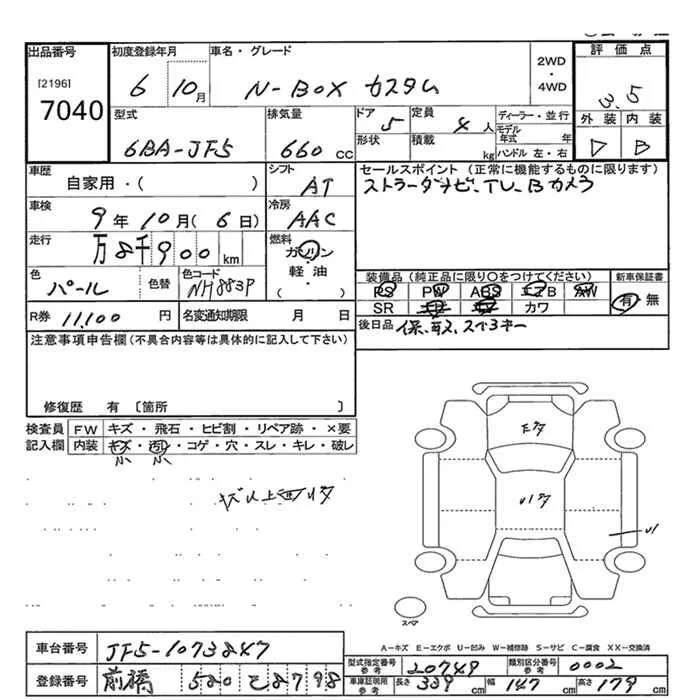 出品番号
[2196]
7040
初度登録年月
6 10月
車名・グレード
N-BOX カスタム
2WD
・
4WD
評価点
3.5
外装 内装
D B
型式
6BA-JF5
排気量
660 cc
ドア
5
形状
定員
4 人
積載
kg
ディーラー・並行
モデル年式 年
ハンドル 左・右
車歴
自家用・( )
シフト
AT
セールスポイント (正常に機能するものに限ります)
ストラーダナビ、TV、Bカメラ
車検
9年10月(6日)
冷房
AAC
走行
万8千900km
燃料
ガソリン
軽油
( )
色
パール
色替
色コード
NH883P
装備品 (純正品に限り○をつけてください)
PS PW ABS エアB AW
SR カワ
新車保証書
有・無
R券 11,100 円
名変通知期限 月 日
後日品
注意事項申告欄 (不具合内容等は具体的に記入して下さい)
修復歴 有 〔箇所 〕
検査員記入欄
FW キズ・飛石・ヒビ割・リペア跡・×要
内装 キズ・汚・コゲ・穴・スレ・キレ・破レ
小 小
U1
スペア
A-キズ E-エクボ U-凹み W-補修跡 S-サビ C-腐食 XX-交換済
車台番号 JF5-1073247
登録番号 前橋 580 と 8798
型式指定番号 参考 20749
類別区分番号 参考 0002
車庫証明用 参考 長さ 339 cm 幅 147 cm 高さ 179 cm